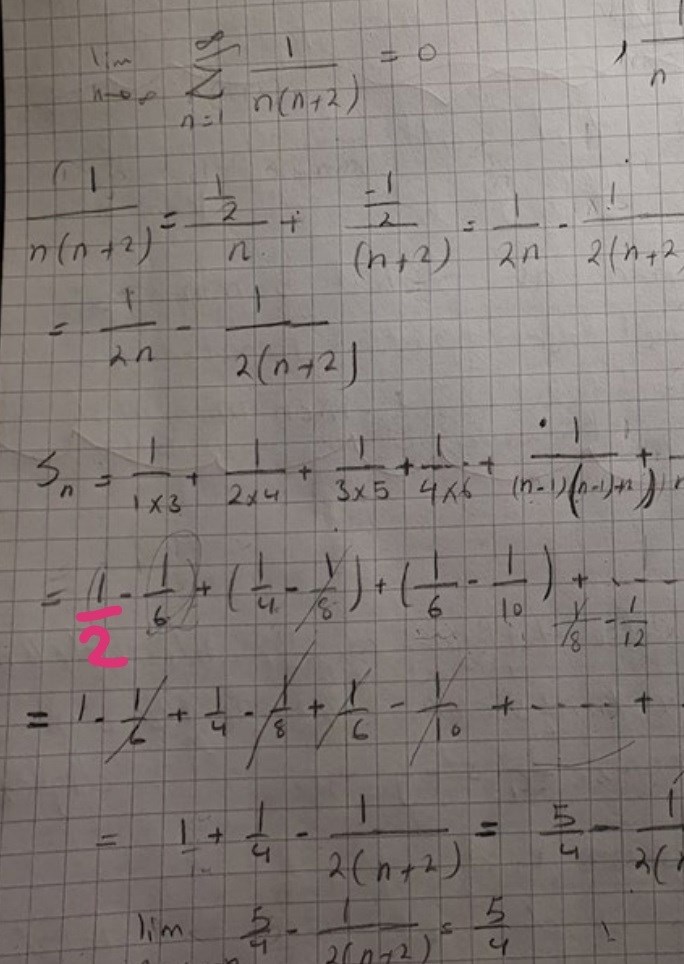 lim n→∞ ∞ Σ n=1 1/(n(n+2)) = 0 , 1/n
1/(n(n+2)) = (1/2)/n + (-1/2)/(n+2) = 1/(2n) - 1/(2(n+2
= 1/(2n) - 1/(2(n+2))
Sn = 1/(1×3) + 1/(2×4) + 1/(3×5) + 1/(4×6) + 1/((n-1)((n-1)+n)) +
= (1/2 - 1/6) + (1/4 - 1/8) + (1/6 - 1/10) + ----
1/8 - 1/12
= 1 - 1/6 + 1/4 - 1/8 + 1/6 - 1/10 + ---- +
= 1 + 1/4 - 1/(2(n+2)) = 5/4 - 1/(2(
lim 5/4 - 1/(2(n+2)) = 5/4